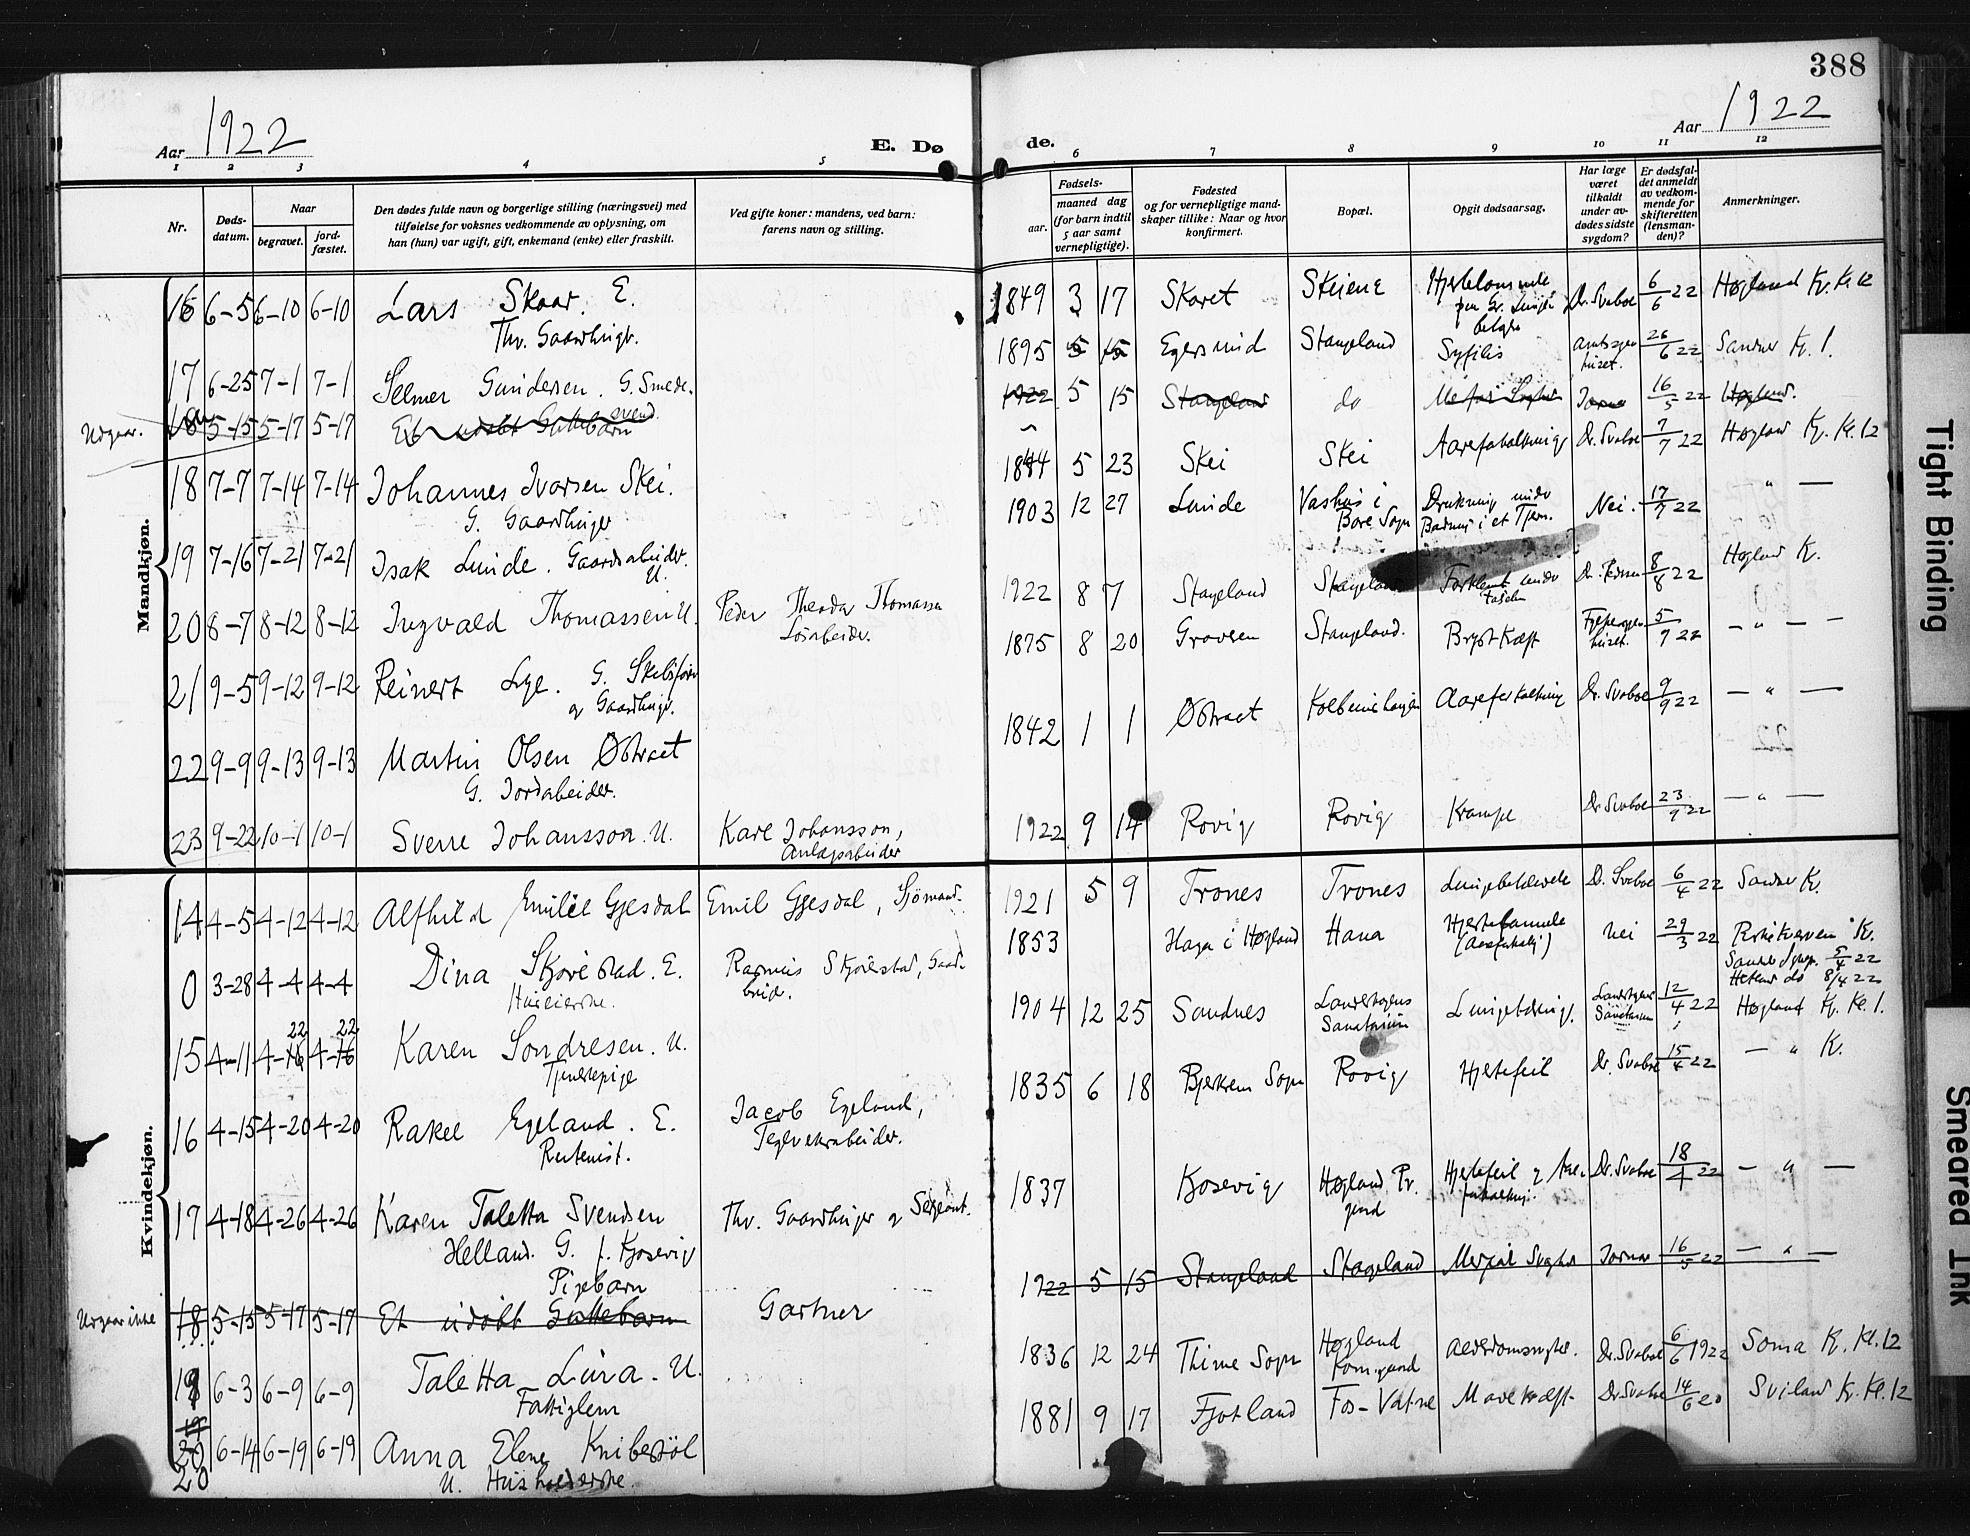 388
Aar 1922
E. Dø
de.
Aar 1922
1 2 3 4 5 6 7 8 9 10 11 12
Nr.
Døds-
datum.
Naar
begravet.
jord-
fæstet.
Den dødes fulde navn og borgerlige stilling (næringsvei) med
tilføielse for voksnes vedkommende av oplysning, om
han (hun) var ugift, gift, enkemand (enke) eller fraskilt.
Ved gifte koner: mandens, ved barn:
farens navn og stilling.
Fødsels-
aar.
maaned dag
(for barn indtil
5 aar samt
vernepligtige).
Fødested
og for vernepligtige mand-
skaper tillike: Naar og hvor
konfirmert.
Bopæl.
Opgit dødsaarsag.
Har læge
været
tilkaldt
under av-
dødes sidste
sygdom?
Er dødsfal-
det anmeldt
av vedkom-
mende for
skifteretten
(lensman-
den)?
Anmerkninger.
Mandkjøn.
16 6-5 6-10 6-10 Lars Skaar. E. 1849 3 17 Skaret Skeiene Dr. Svaboe 6/6 22 Høgland K. Kl. 12
17 6-25 7-1 7-1 Selmer Gundersen. G. Smede-
svend. 1895 5 15 Egersund Stangeland Syfilis 26/6 22 Sandnes K. 1.
Udgaar. 18 5-15 5-17 5-17 Et udøbt Guttebarn 1922 5 15 Stangeland do 16/5 22 Høgland.
18 7-7 7-14 7-14 Johannes Ivarsen Skei.
G. Gaardbruger 1844 5 23 Skei Skei Aareforkalkning Dr. Svaboe 7/7 22 Høgland K. Kl. 12
19 7-16 7-21 7-21 Isak Lunde. Gaardsarbeider.
U. 1903 12 27 Lunde Vashus i
Bore Sogn Drukning under
Badning i et Tjern. Nei. 17/7 22 — " —
20 8-7 8-12 8-12 Ingvald Thomassen U. Peder Theodor Thomassen
Løsarbeider. 1922 8 7 Stangeland Stangeland 8/8 22 Høgland K.
21 9-5 9-12 9-12 Reinert Lye. G.
og Gaardbruger. 1875 8 20 Gravsen Stangeland. Brystkræft 5/9 22 — " —
22 9-9 9-13 9-13 Martin Olsen Østraat
G. Jordarbeider. 1842 1 1 Østraat Aareforkalkning Dr. Svaboe 9/9 22 — " —
23 9-22 10-1 10-1 Sverre Johansson. U. Karl Johansson,
Anlægsarbeider 1922 9 14 Rovig Rovig Krampe Dr Svaboe 23/9 22 — " —
Kvindekjøn.
14 4-5 4-12 4-12 Alfhild Emilie Gjesdal Emil Gjesdal, Sjömand. 1921 5 9 Trones Trones Lungebetændelse Dr. Svaboe 6/4 22 Sandnes K.
0 3-28 4-4 4-4 Dina Skjørestad. E.
Huseierske. Rasmus Skjørestad, Gaard-
bruger. 1853 Haga i Høgland Hana Nei 29/3 22
15 4-11 4-16 22 4-16 22 Karen Sondresen. U.
Tjenestepige 1904 12 25 Sandnes Landstøgens
Sanatorium 12/4 22 Høgland K. Kl. 1.
16 4-15 4-20 4-20 Rakel Egeland. E.
Rentenist. Jacob Egeland,
Teglverksarbeider. 1835 6 18 Bjerkrem Sogn Rovig Hjertefeil Dr. Svaboe 15/4 22 — " K.
17 4-18 4-26 4-26 Karen Taletta Svendsen
Helland. G. f. Kjosevig Thv. Gaardbruger og Sergeant. 1837 Kjosevig Høgland Pr.
gaard Dr. Svaboe 18/4 22 — " —
Pigebarn
Udgaar ikke 18 5-15 5-17 5-17 Et udøbt Guttebarn Gartner 1922 5 15 Stangeland Stangeland 16/5 22 — " —
19 6-3 6-9 6-9 Taletta Lura. U.
Fattiglem 1836 12 24 Thime Sogn Høgland
Kom.gaard Alderdomssvaghet. Dr. Svaboe 6/6 1922 Soma K. Kl. 12
19
20
20 6-14 6-19 6-19 Anna Elene Knibesøl
U. Husholderske. 1881 9 17 Fjotland Fos-Vatne Mavekræft Dr Svaboe 14/6 20 Sviland K. Kl. 12
Tight Binding
Smeared Ink